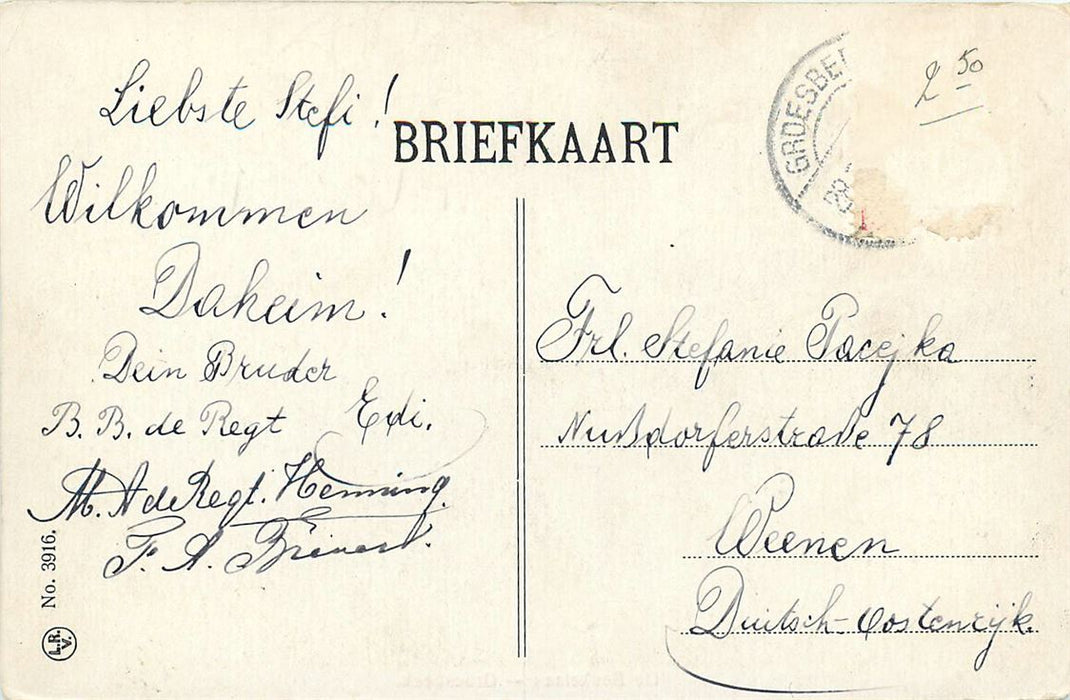 Liebste Stefi!
BRIEFKAART
Wilkommen
Daheim!
Dein Bruder
Edi.
B. B. de Regt
M. A de Regt. Henning
F. A.
No. 3916.
L.R.
V.
GROESBE
2 50
Frl. Stefanie Pacejka
Nußdorferstraße 78
Weenen
Duitsch-Oostenrijk.